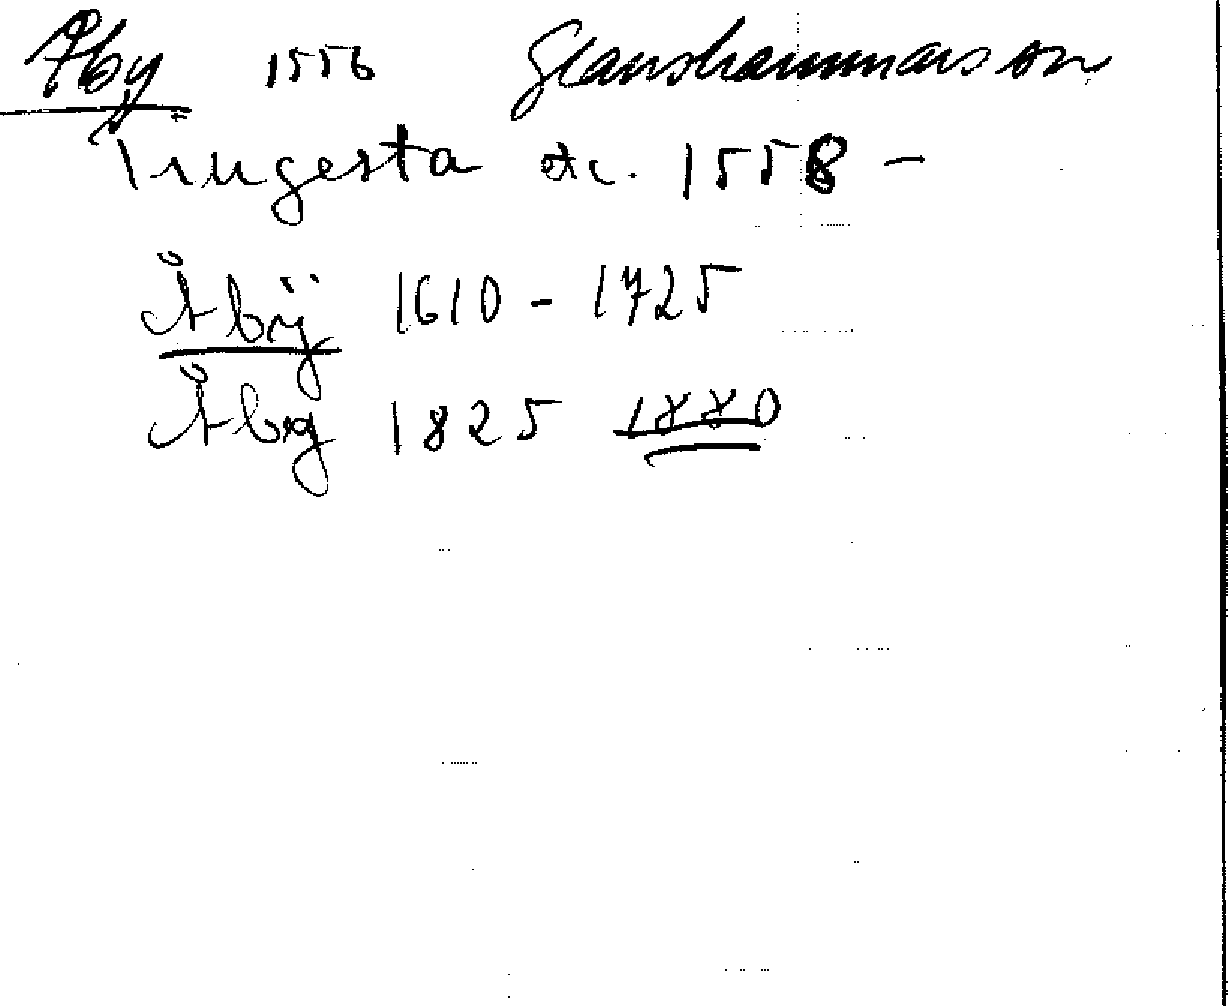 Åby 1556 Glanshammars sn
Tingesta etc. 1558 -
Åbÿ 1610 - 1725
Åby 1825 1880